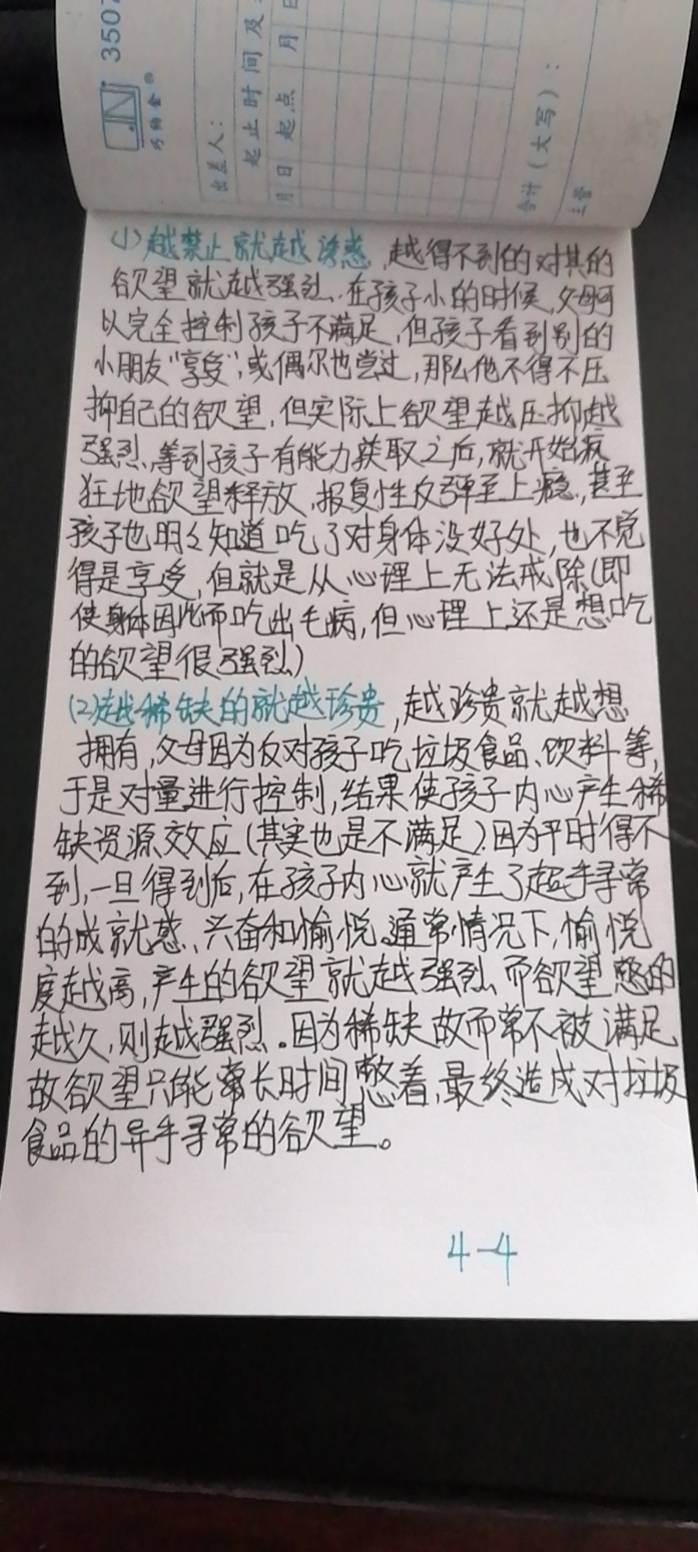 3507
巧纳会®
出差人：
起止时间及
月 日 起点 月 日
合计（大写）：
主管
(1)越禁止就越诱惑,越得不到的对其的
欲望就越强烈.在孩子小的时候,父母可
以完全控制孩子不满足,但孩子看到别的
小朋友"享受",或偶尔也尝过,那么他不得不压
抑自己的欲望,但实际上欲望越压抑越
强烈,等到孩子有能力获取之后,就开始疯
狂地欲望释放,报复性反弹至上瘾,甚至
孩子也明々知道吃了对身体没好处,也不觉
得是享受,但就是从心理上无法戒除(即
使身体因此而吃出毛病,但心理上还是想吃
的欲望很强烈)
(2)越稀缺的就越珍贵,越珍贵就越想
拥有,父母因为反对孩子吃垃圾食品、饮料等,
于是对量进行控制,结果使孩子内心产生稀
缺资源效应(其实也是不满足).因为平时得不
到,一旦得到后,在孩子内心就产生了超乎寻常
的成就感、兴奋和愉悦。通常情况下,愉悦
度越高,产生的欲望就越强烈.而欲望憋的
越久,则越强烈。因为稀缺故而常不被满足,
故欲望只能常长时间憋着,最终造成对垃圾
食品的异乎寻常的欲望。
4-4